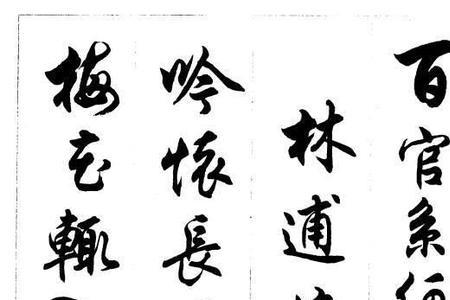 百官系
林逋
吟懷長
梅花輒